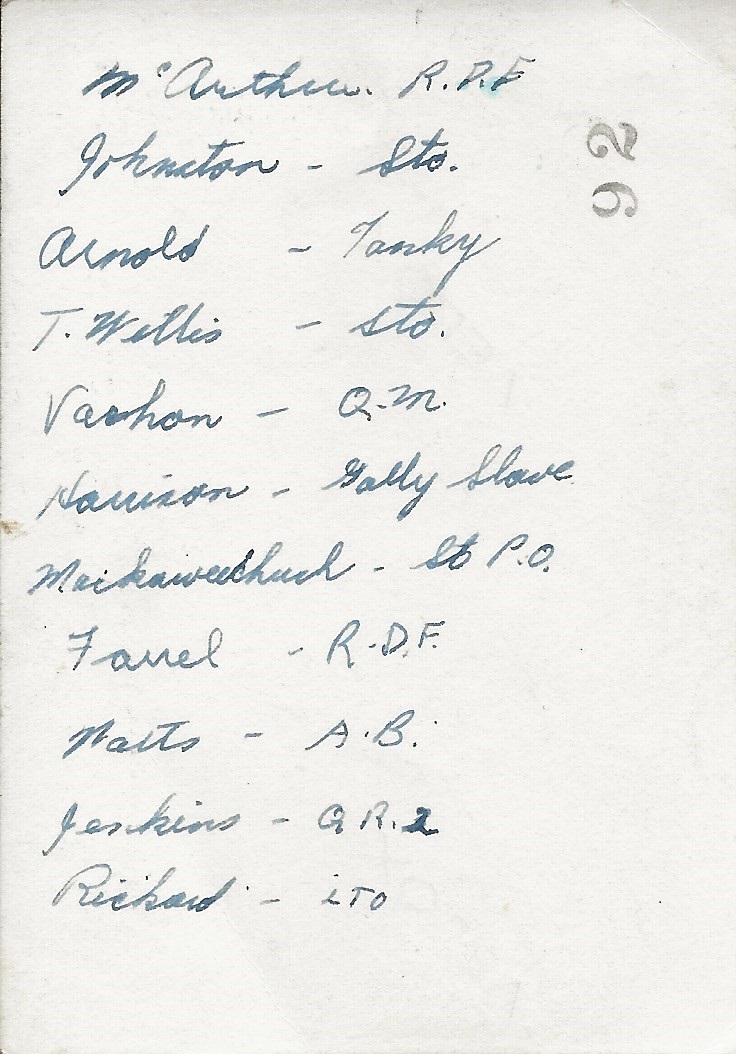 McArthur. R.D.F
Johnston - Sto.
Arnold - Tanky
T. Willis - Sto.
Vachon - Q.M.
Harrison - Gally Slave
- St P.O.
Farrel - R.D.F.
Watts - A.B.
Jenkins - Q R. 2
Richard - LTO
92